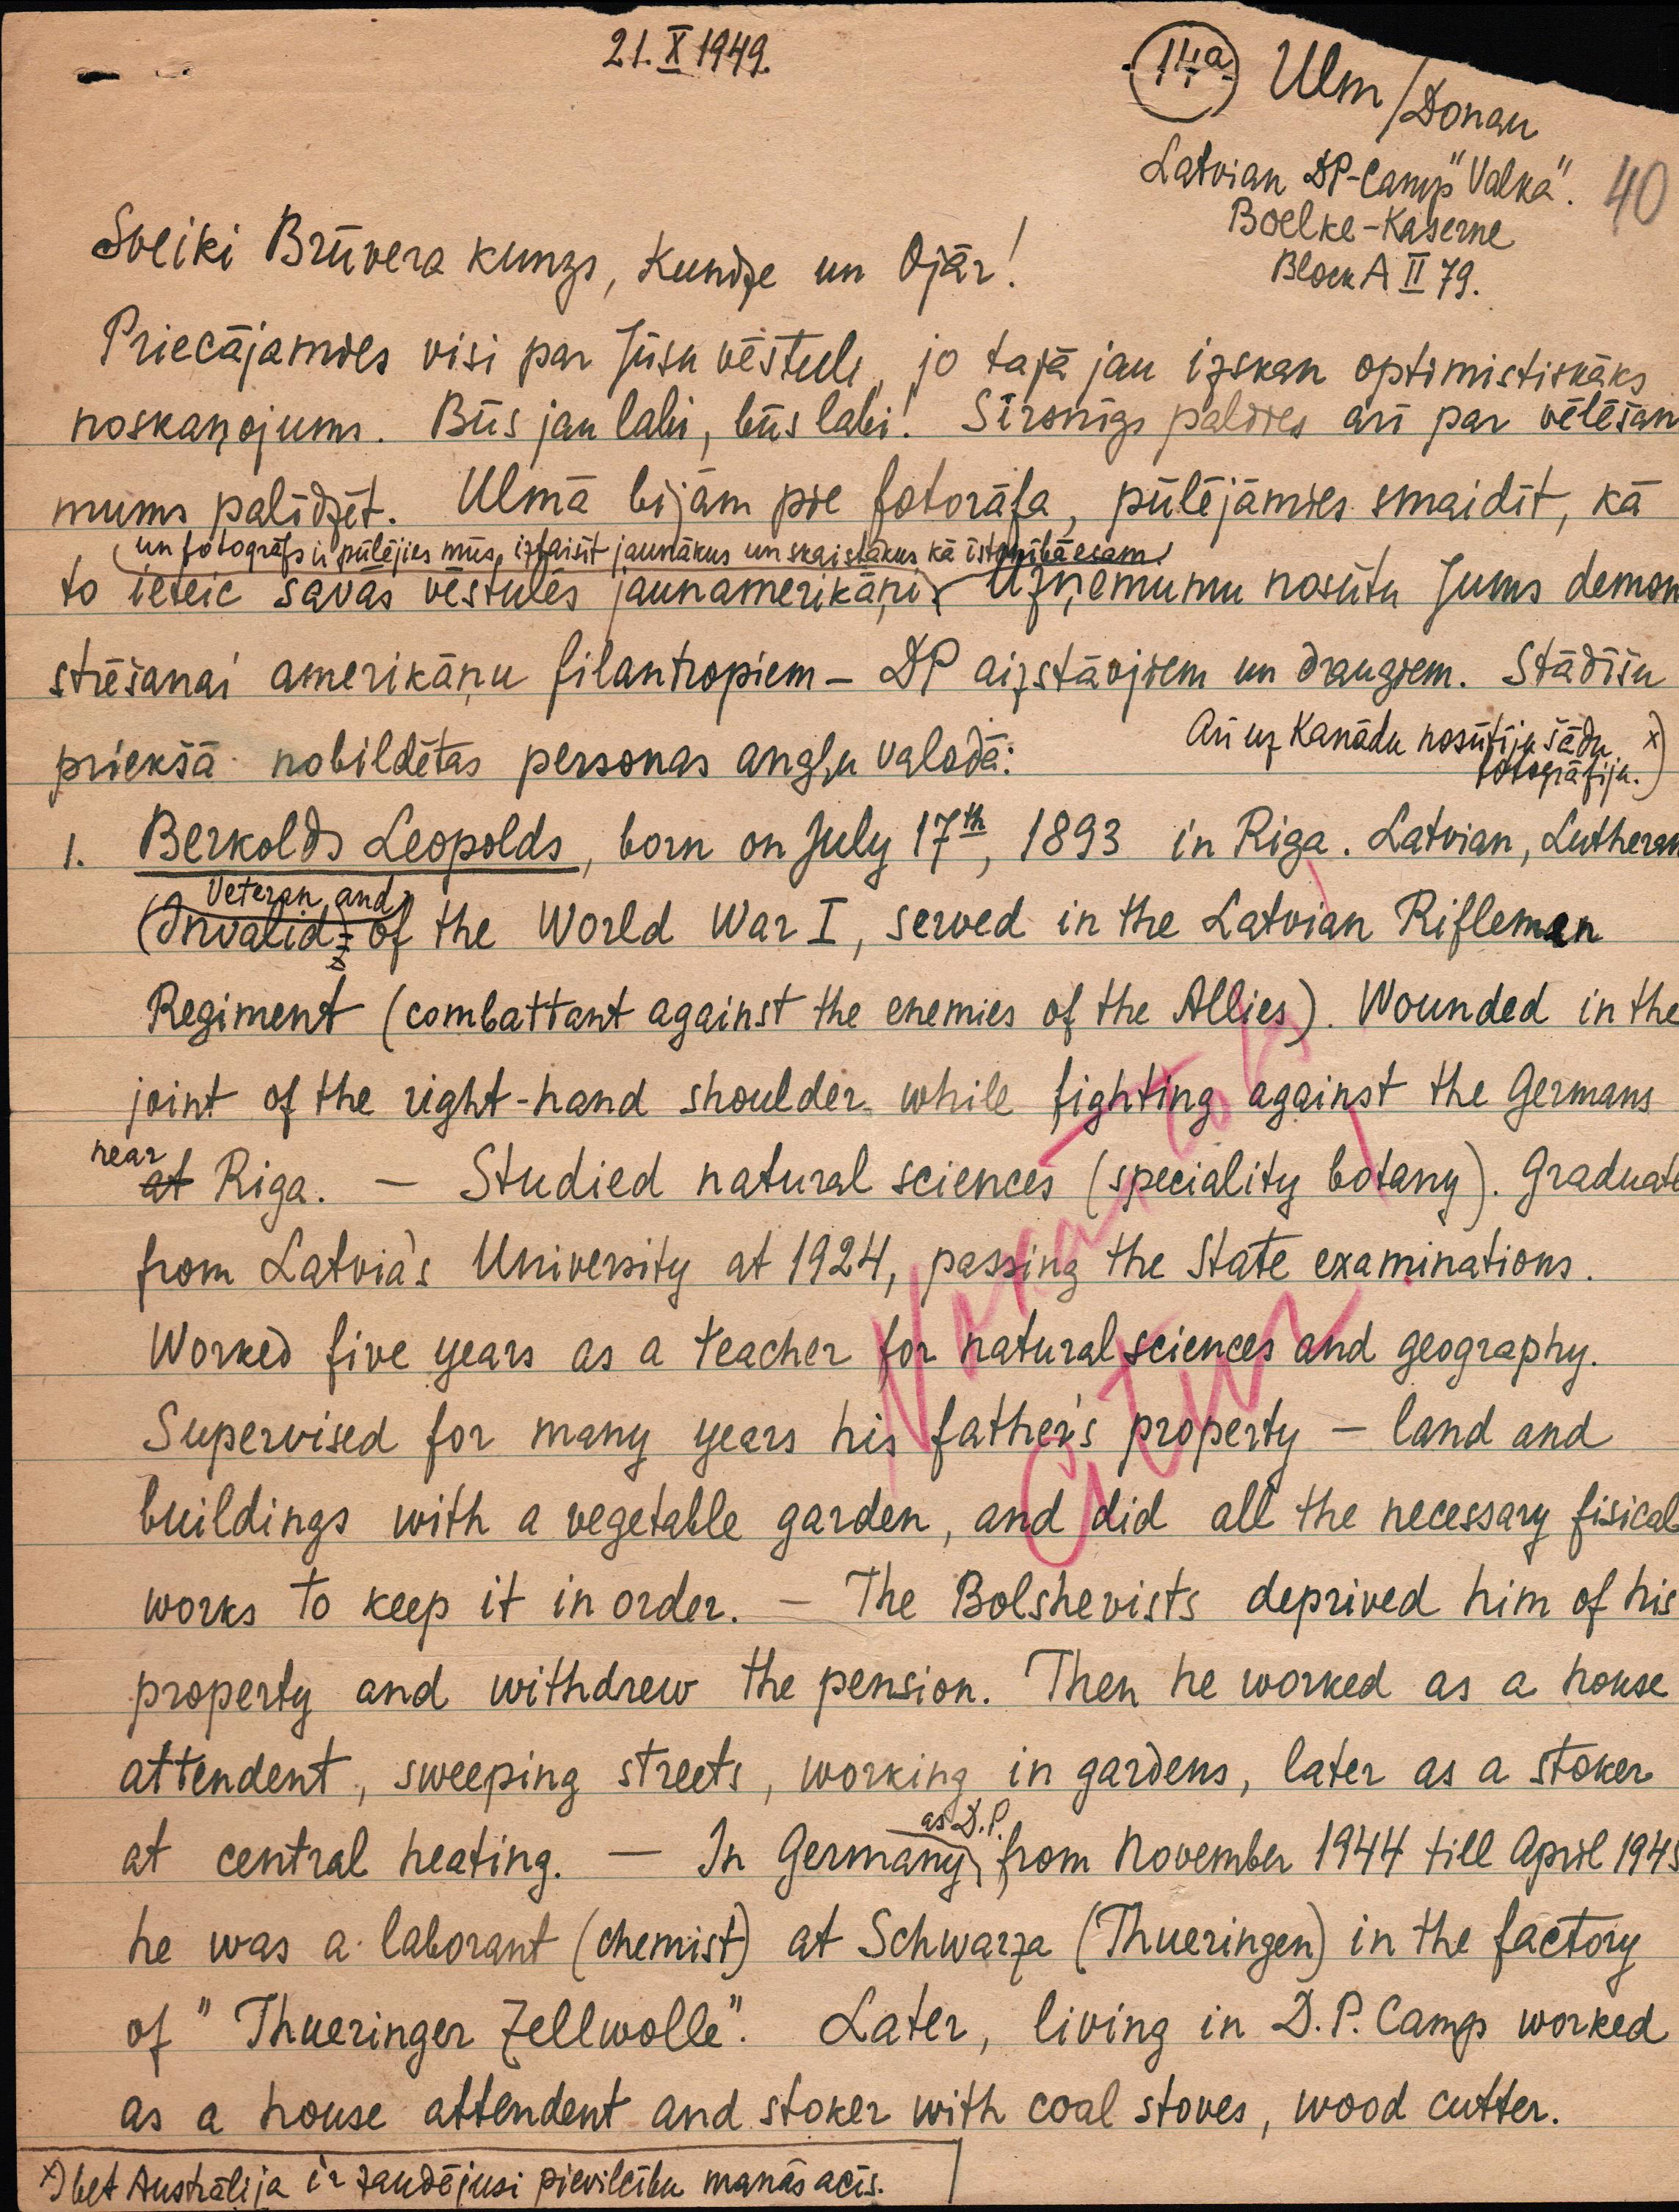 21. X 1949.
14a
Ulm/Donau
Latvian DP-Camp "Valka".
40
Boelke-Kaserne
Block A II 79.
Sveiki Brūvera kungs, Kundze un Ojār!
Priecājamies visi par Jūsu vēstuli, jo tajā jau izskan optimistiskāks
noskaņojums. Būs jau labi, būs labi! Sirsnīgs paldies arī par vēlēšan
mums palīdzēt. Ulmā bijām pie fotorāfa, pūlējāmies smaidīt, kā
un fotogrāfs ir pūlējies mūs iztaisīt jaunākus un skaistākus kā īstenībā esam!
to ieteic savās vēstulēs jaunamerikāņi. Uzņēmumu nosūtu Jums demon
strēšanai amerikāņu filantropiem – DP aizstāvjiem un draugiem. Stādīšu
priekšā nobildētas personas angļu valodā:
Arī uz Kanādu nosūtīju šādu x)
fotogrāfiju.
1. Berkolds Leopolds, born on July 17th, 1893 in Riga. Latvian, Lutheran
Veteran and
(Invalid) of the World War I, served in the Latvian Rifleman
Regiment (combattant against the enemies of the Allies). Wounded in the
joint of the right-hand shoulder while fighting against the Germans
near
at Riga. – Studied natural sciences (speciality botany). Graduate
from Latvia's University at 1924, passing the State examinations.
Worked five years as a teacher for natural sciences and geography.
Supervised for many years his father's property – land and
buildings with a vegetable garden, and did all the necessary fisical
works to keep it in order. – The Bolshevists deprived him of his
property and withdrew the pension. Then he worked as a house
attendent, sweeping streets, working in gardens, later as a stoker
as D.P.
at central heating. – In Germany, from November 1944 till April 1945
he was a laborant (chemist) at Schwarza (Thueringen) in the factory
of "Thueringer Zellwolle". Later, living in D.P. Camp worked
as a house attendent and stoker with coal stoves, wood cutter.
x) bet Austrālija ir zaudējusi pievilcību manās acīs.